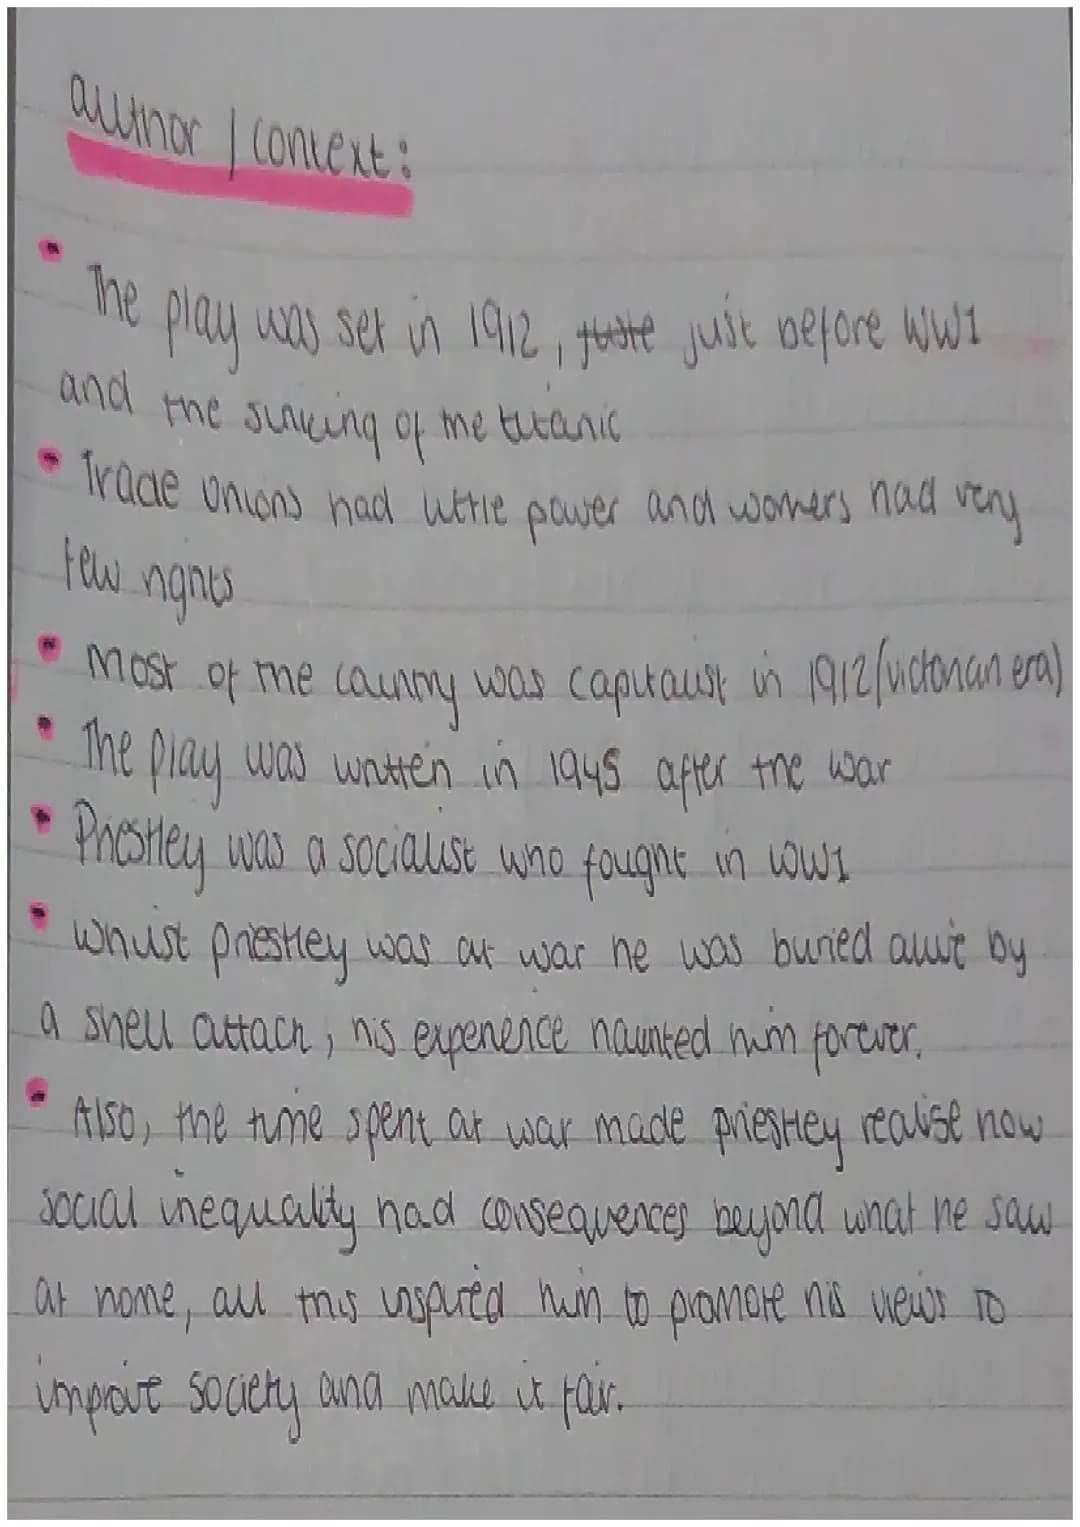 author / context:
• The play was set in 1912, just before WW1
and the sinking of the titanic
• Trade unions had little power and workers had very
few rights
• Most of the country was capitalist in 1912/(victorian era)
• The play was written in 1945 after the war
• Priestley was a socialist who fought in WW1
• whilst priestley was at war he was buried alive by
a shell attack, his experience haunted him forever.
• Also, the time spent at war made priestley realise how
social inequality had consequences beyond what he saw
at home, all this inspired him to promote his views to
improve society and make it fair.